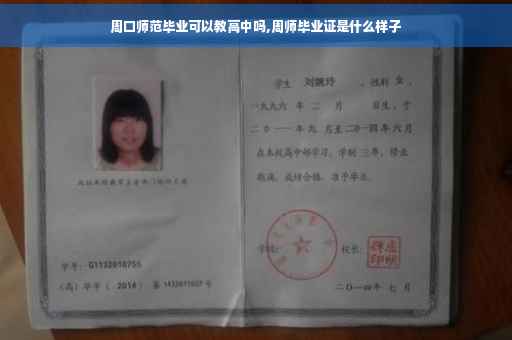 周口师范毕业可以教高中吗,周师毕业证是什么样子
学生 刘婉玲 ，性别 女 ，
一九九六 年 二 月 日生，于
二〇一一年九 月至二〇一四年六月
在本校高中部学习，学制 三年，修业
期满，成绩合格，准予毕业。
学号： G1132010755
(高) 毕字 ( 2014 ) 第 1432011027 号
学校：
校长：
二〇一四年 七 月